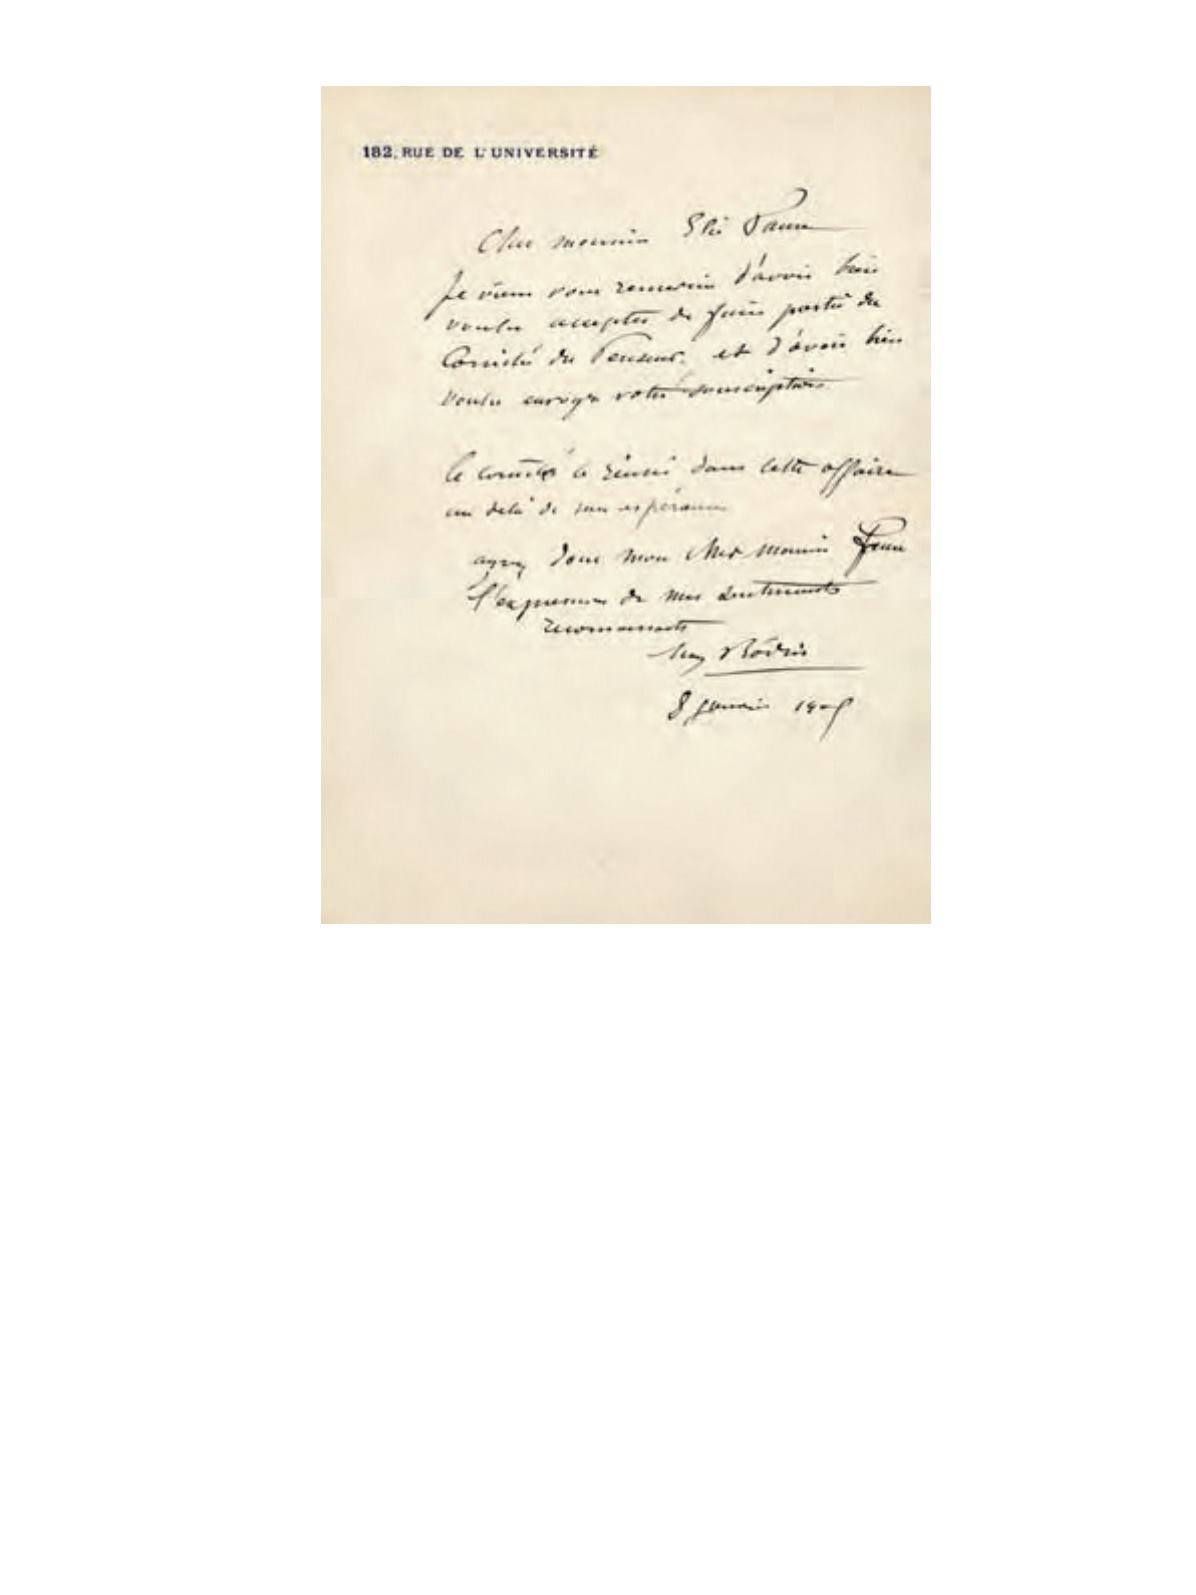 182, RUE DE L'UNIVERSITÉ
Cher monsieur Elie Faure
Je viens vous remercier d'avoir bien
voulu accepter de faire partie du
Comité du Penseur, et d'avoir bien
voulu envoyer votre souscription.
le comité a réussi dans cette affaire
au delà de son espérance
ayez donc mon cher monsieur Faure
l'expression de mes sentiments
reconnaissants
Aug Rodin
8 janvier 1905